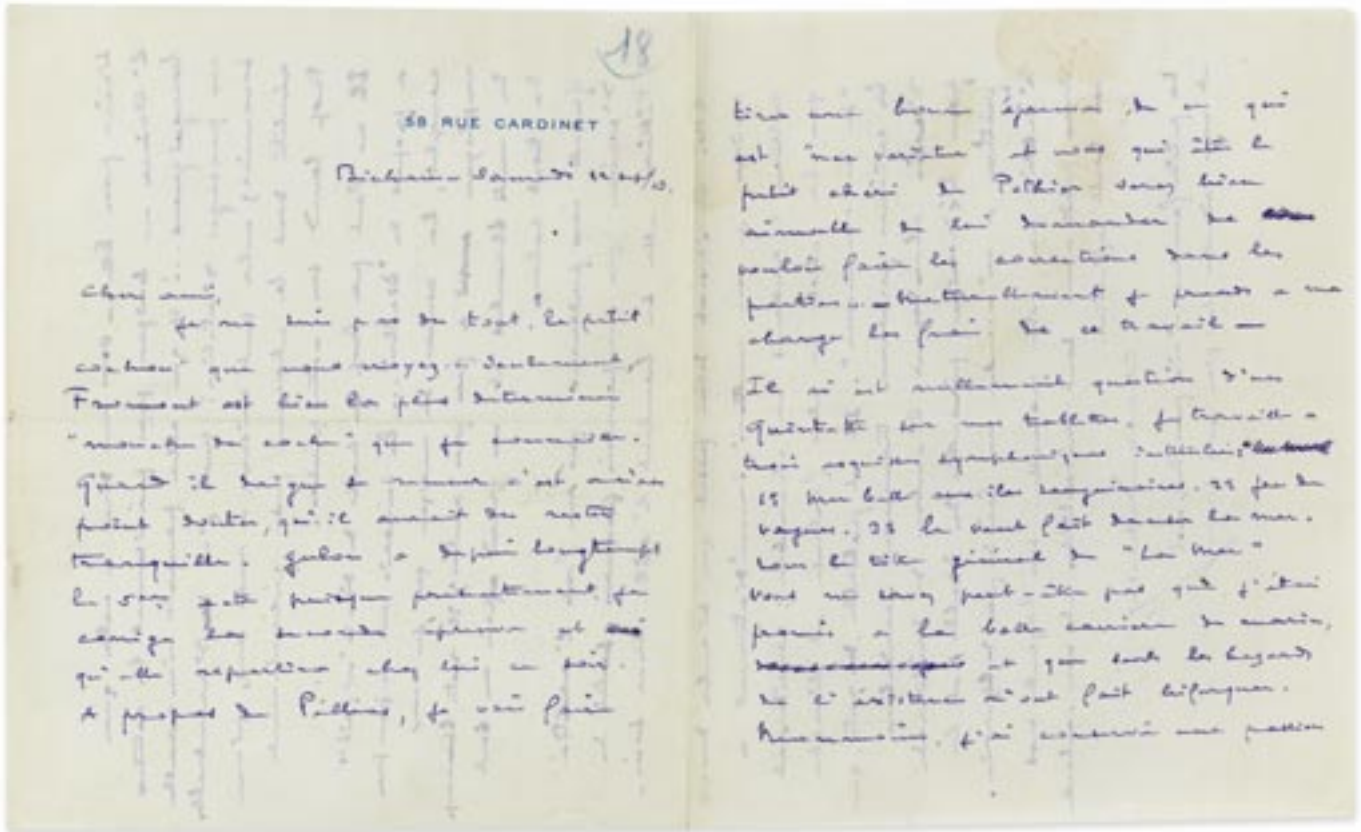 18
58 RUE CARDINET
Bichain Samedi 12
Cher ami,
Je ne suis pas du tout "le petit
cochon" que vous croyez - seulement,
Fromont est bien la plus déterminée
"mouche du coche" que je connaisse.
Quand il daigne se remuer c'est, n'en
point douter, qu'il aurait dû rester
tranquille. Gulon a depuis longtemps
le 5me acte puisque présentement je
corrige les secondes épreuves et
qu'elles repartiront chez lui ce soir.
A propos de Pelléas, je vais faire
tirer une bonne épreuve de ce qui
est "nos variantes" et vous qui êtes le
petit chéri de Pothier serez bien
aimable de lui demander de
vouloir faire les corrections dans les
parties - Naturellement je prends à ma
charge les frais de ce travail -
Il n'est nullement question d'un
Quintette sur mes tablettes. Je travaille à
trois esquisses symphoniques intitulées:
1º Mer belle aux îles sanguinaires. 2º jeu de
vagues. 3º le vent fait danser la mer.
sous le titre général de "La Mer"
Vous ne savez peut-être pas que j'étais
promis à la belle carrière de marin,
et que seuls les hasards
de l'existence m'ont fait bifurquer.
Néanmoins, j'ai conservé une passion